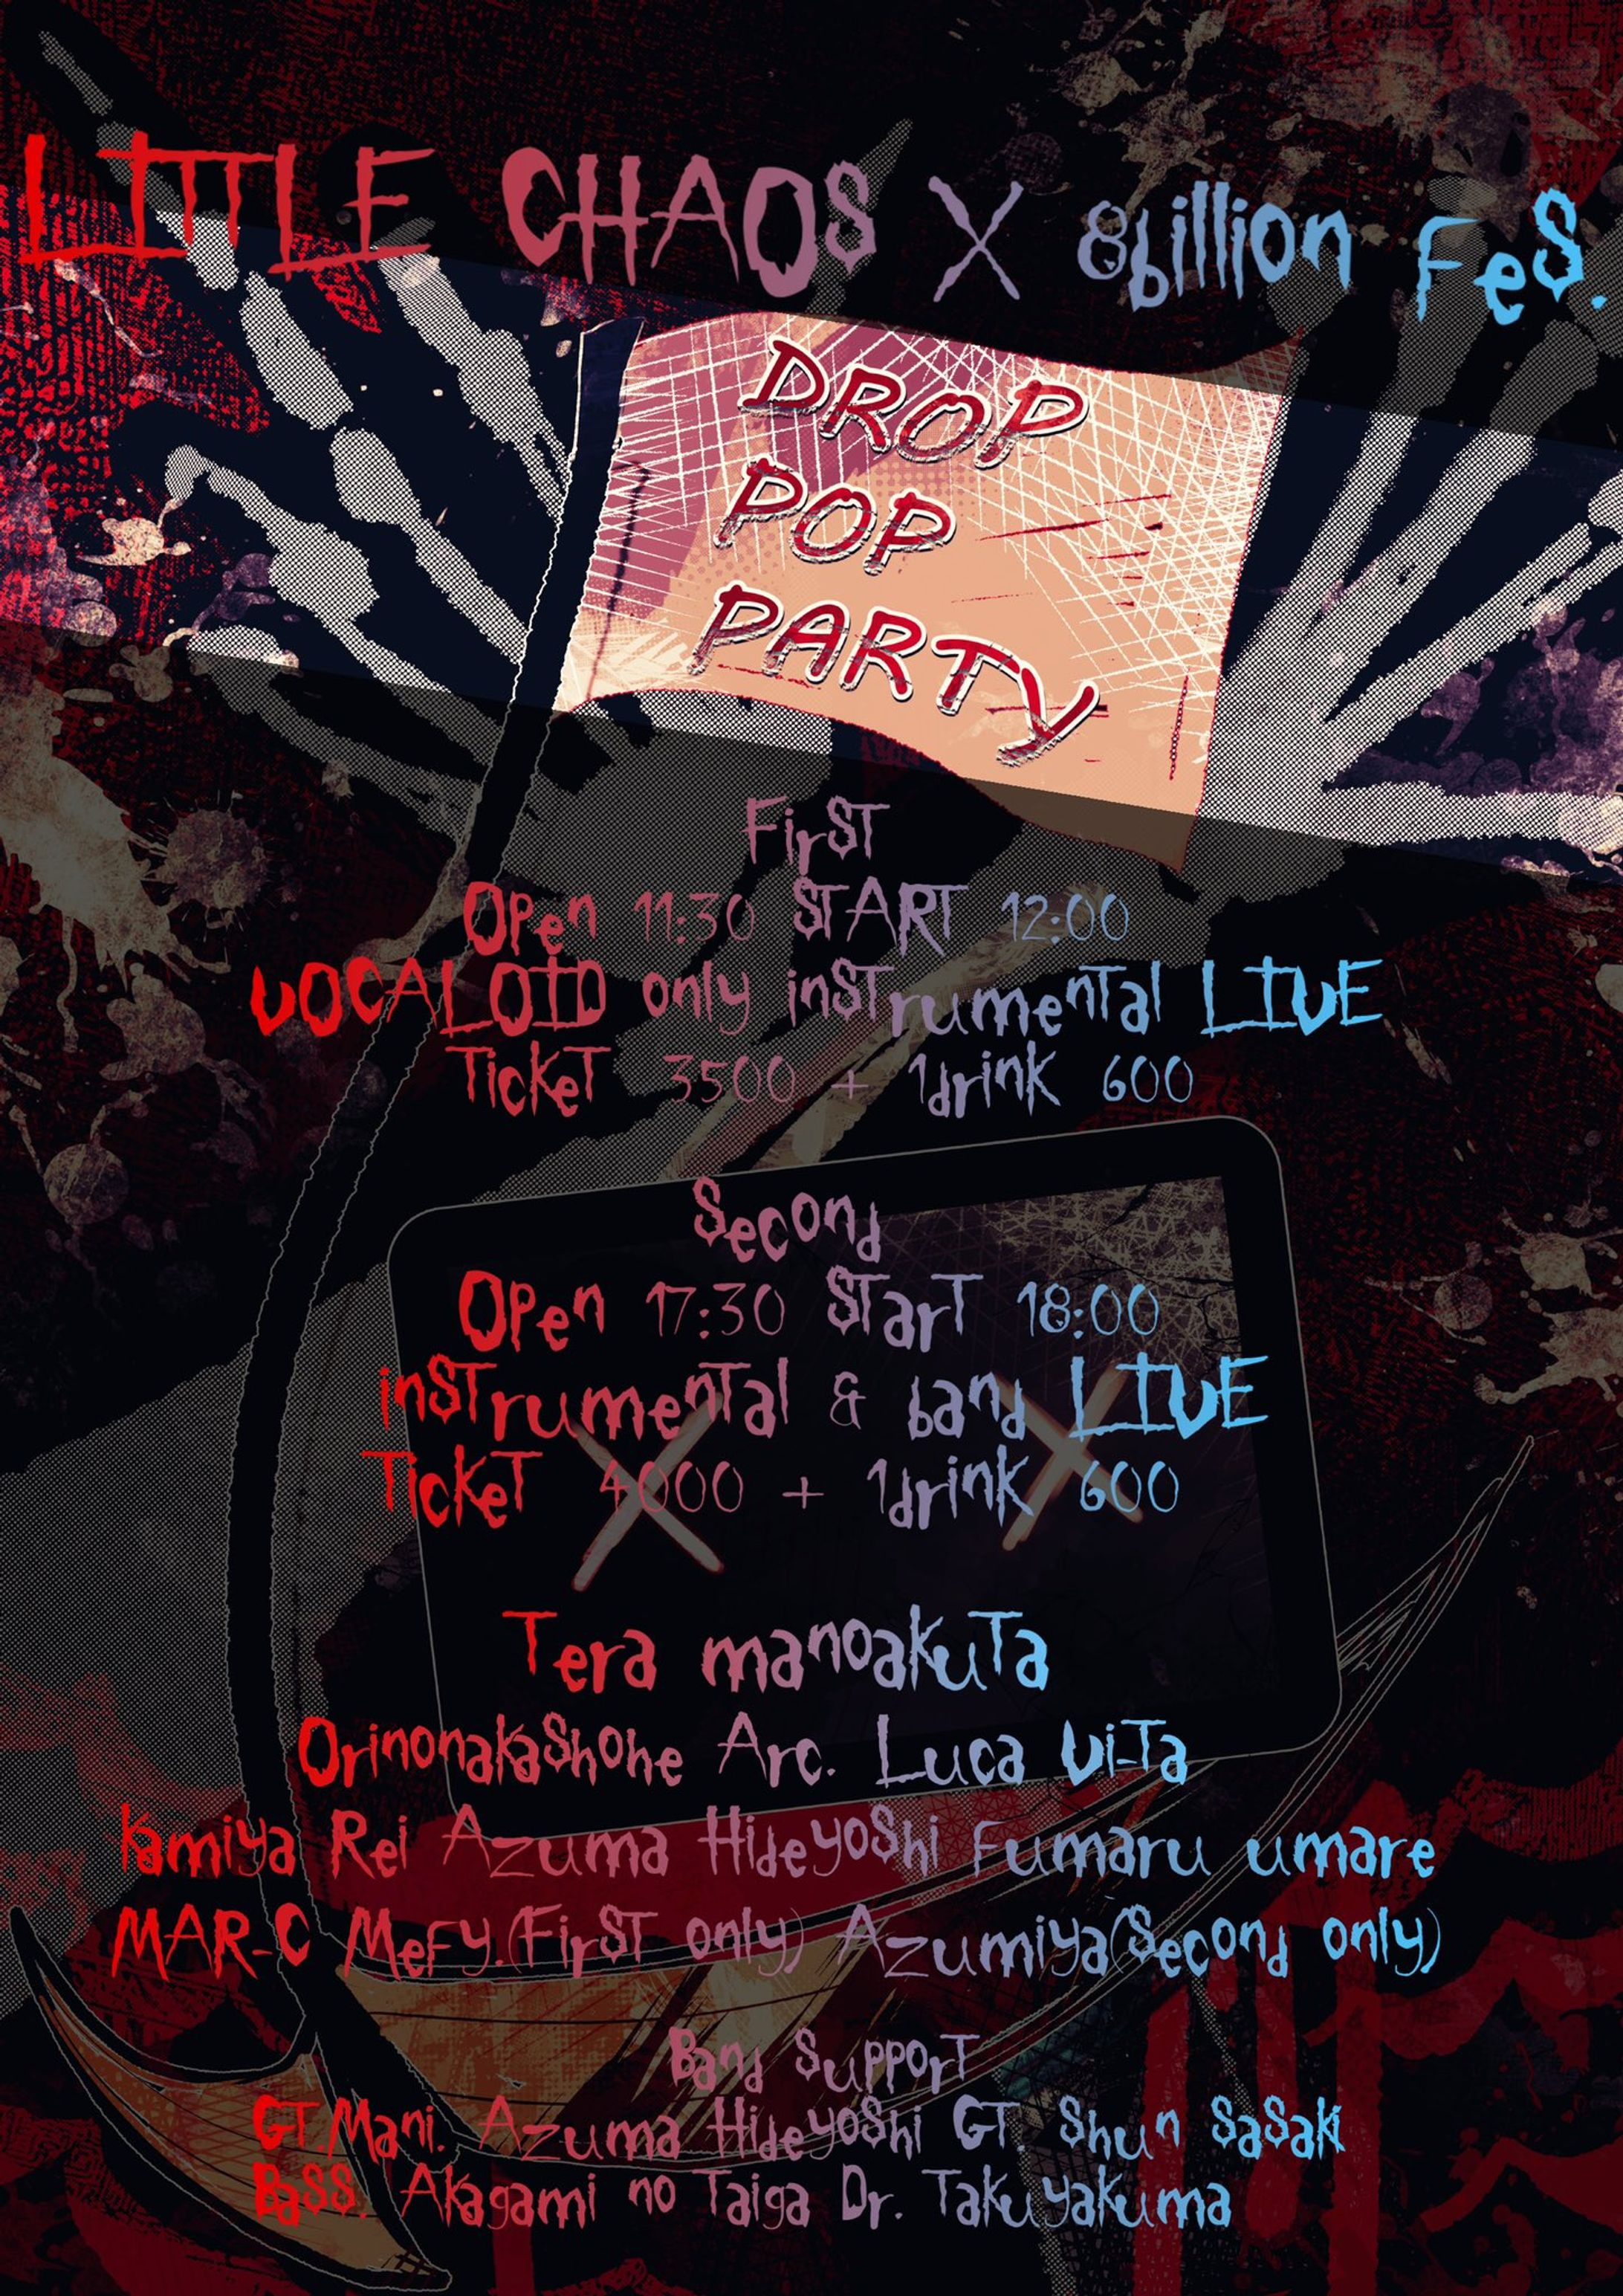 LITTLE CHAOS X 8billion FeS.
DROP
POP
PARTY
FirST
OPen 11:30 START 12:00
VOCALOID only inSTrumenTal LIVE
TickeT 3500 + 1drink 600
Second
OPen 17:30 STarT 18:00
inSTrumenTal & band LIVE
TickeT 4000 + 1drink 600
Tera manoakuTa
OrinonakaShohe Arc. Luca Vi-Ta
Kamiya Rei Azuma HideyoShi Fumaru umare
MAR-C MeFy.(FirST only) Azumiya(Second only)
Band SupporT
GT.Mani. Azuma HideyoShi GT. Shun SaSaki
BaSS. Akagami no Taiga Dr. Takuyakuma